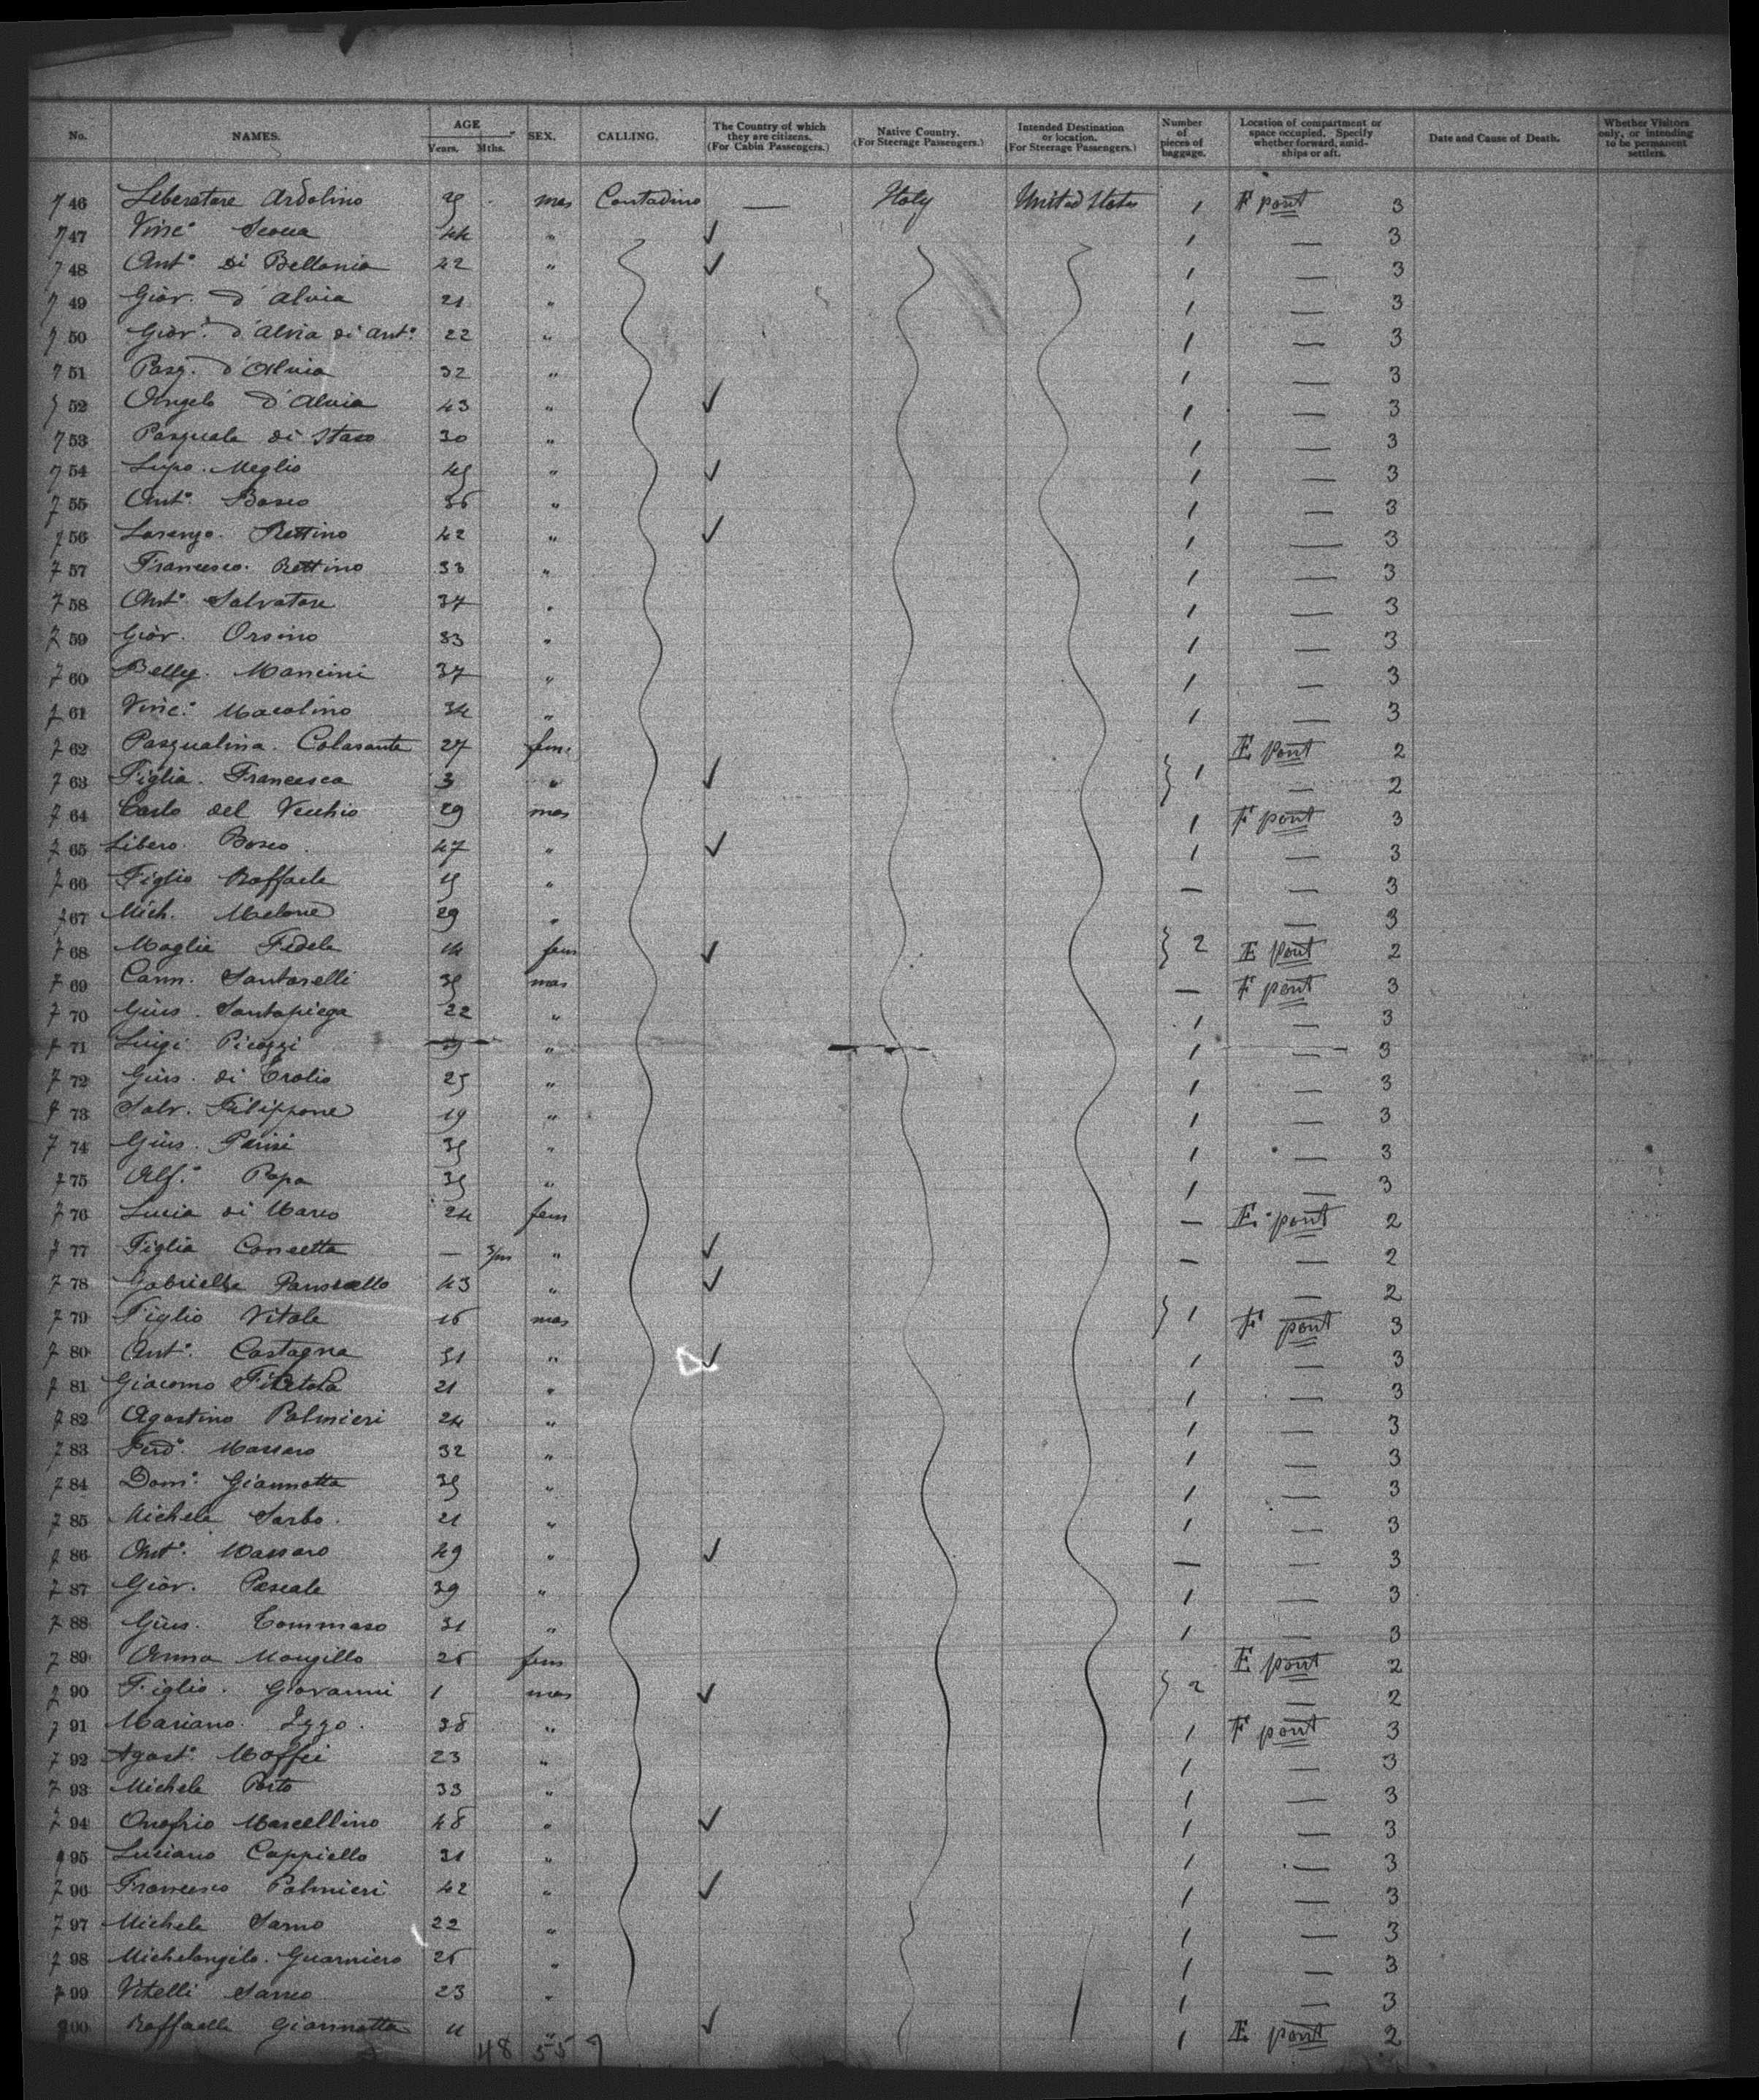 No. NAMES. AGE Years. Mths. SEX. CALLING. The Country of which they are citizens. (For Cabin Passengers.) Native Country. (For Steerage Passengers.) Intended Destination or location. (For Steerage Passengers.) Number of pieces of baggage. Location of compartment or space occupied. Specify whether forward, amidships or aft. Date and Cause of Death. Whether Visitors only, or intending to be permanent settlers.
746 Liberatore Ardolino mas Contadino — Italy United States 1 F pont 3
747 Vinc° 44 " ✓ 1 — 3
748 Ant° di Bellonia 42 " ✓ 1 — 3
749 Giov. d'Alvia 21 " 1 — 3
750 Giov. d'Alvia di Ant° 22 " 1 — 3
751 Pasq. d'Alvia 32 " 1 — 3
752 Angelo d'Alvia 43 " ✓ 1 — 3
753 Pasquale di Staso 30 " 1 — 3
754 Lupo Meglio 45 " ✓ 1 — 3
755 Ant° Bosco 36 " 1 — 3
756 Lorenzo Rettino 42 " ✓ 1 — 3
757 Francesco Rettino 33 " 1 — 3
758 Ant° Salvatore 37 " 1 — 3
759 Giov. Orsino 33 " 1 — 3
760 Mancini 37 " 1 — 3
761 Vinc° Macolino 34 " 1 — 3
762 Pasqualina Colasante 27 fem. E pont 2
763 Figlia Francesca 3 " ✓ } 1 — 2
764 Carlo del Vecchio 29 mas 1 F pont 3
765 Libero Bosco 47 " ✓ 1 — 3
766 Figlio Raffaele 15 " — — 3
767 Mich. Melone 29 " — 3
768 Moglie Fedele 14 fem ✓ } 2 E pont 2
769 Carm. Santorelli 35 mas — F pont 3
770 Gius. Santapiega 22 " 1 — 3
771 Luigi Picozzi " 1 — 3
772 Gius. di 25 " 1 — 3
773 Salv. Filippone 19 " 1 — 3
774 Gius. Parisi 35 " 1 — 3
775 Alf° Papa 35 " 1 — 3
776 Lucia di Marco 24 fem — E pont 2
777 Figlia Concetta — 3/m " ✓ — — 2
778 Gabriella 43 " ✓ — 2
779 Figlio Vitale 16 mas } 1 F pont 3
780 Ant° Castagna 51 " ✓ 1 — 3
781 Giacomo 21 " 1 — 3
782 Agostino Palmieri 24 " 1 — 3
783 Ferd° Massaro 32 " 1 — 3
784 Dom° Giannotta 35 " 1 — 3
785 Michele Sarbo 21 " 1 — 3
786 Ant° Massaro 49 " ✓ — — 3
787 Giov. Pascale 39 " 1 — 3
788 Gius. Tommaso 31 " 1 — 3
789 Anna Mongillo 26 fem E pont 2
790 Figlio Giovanni 1 mas ✓ } 2 — 2
791 Mariano Izzo 38 " 1 F pont 3
792 Agost° Maffei 23 " 1 — 3
793 Michele Porto 33 " 1 — 3
794 Onofrio Marcellino 48 " ✓ 1 — 3
795 Luciano Cappiello 31 " 1 — 3
796 Francesco Palmieri 42 " ✓ 1 — 3
797 Michele Sarno 22 " 1 — 3
798 Michelangelo Guarniero 26 " 1 — 3
799 Vitelli 23 " 1 — 3
800 Raffaella Giannotta 11 " ✓ 1 E pont 2
48 55